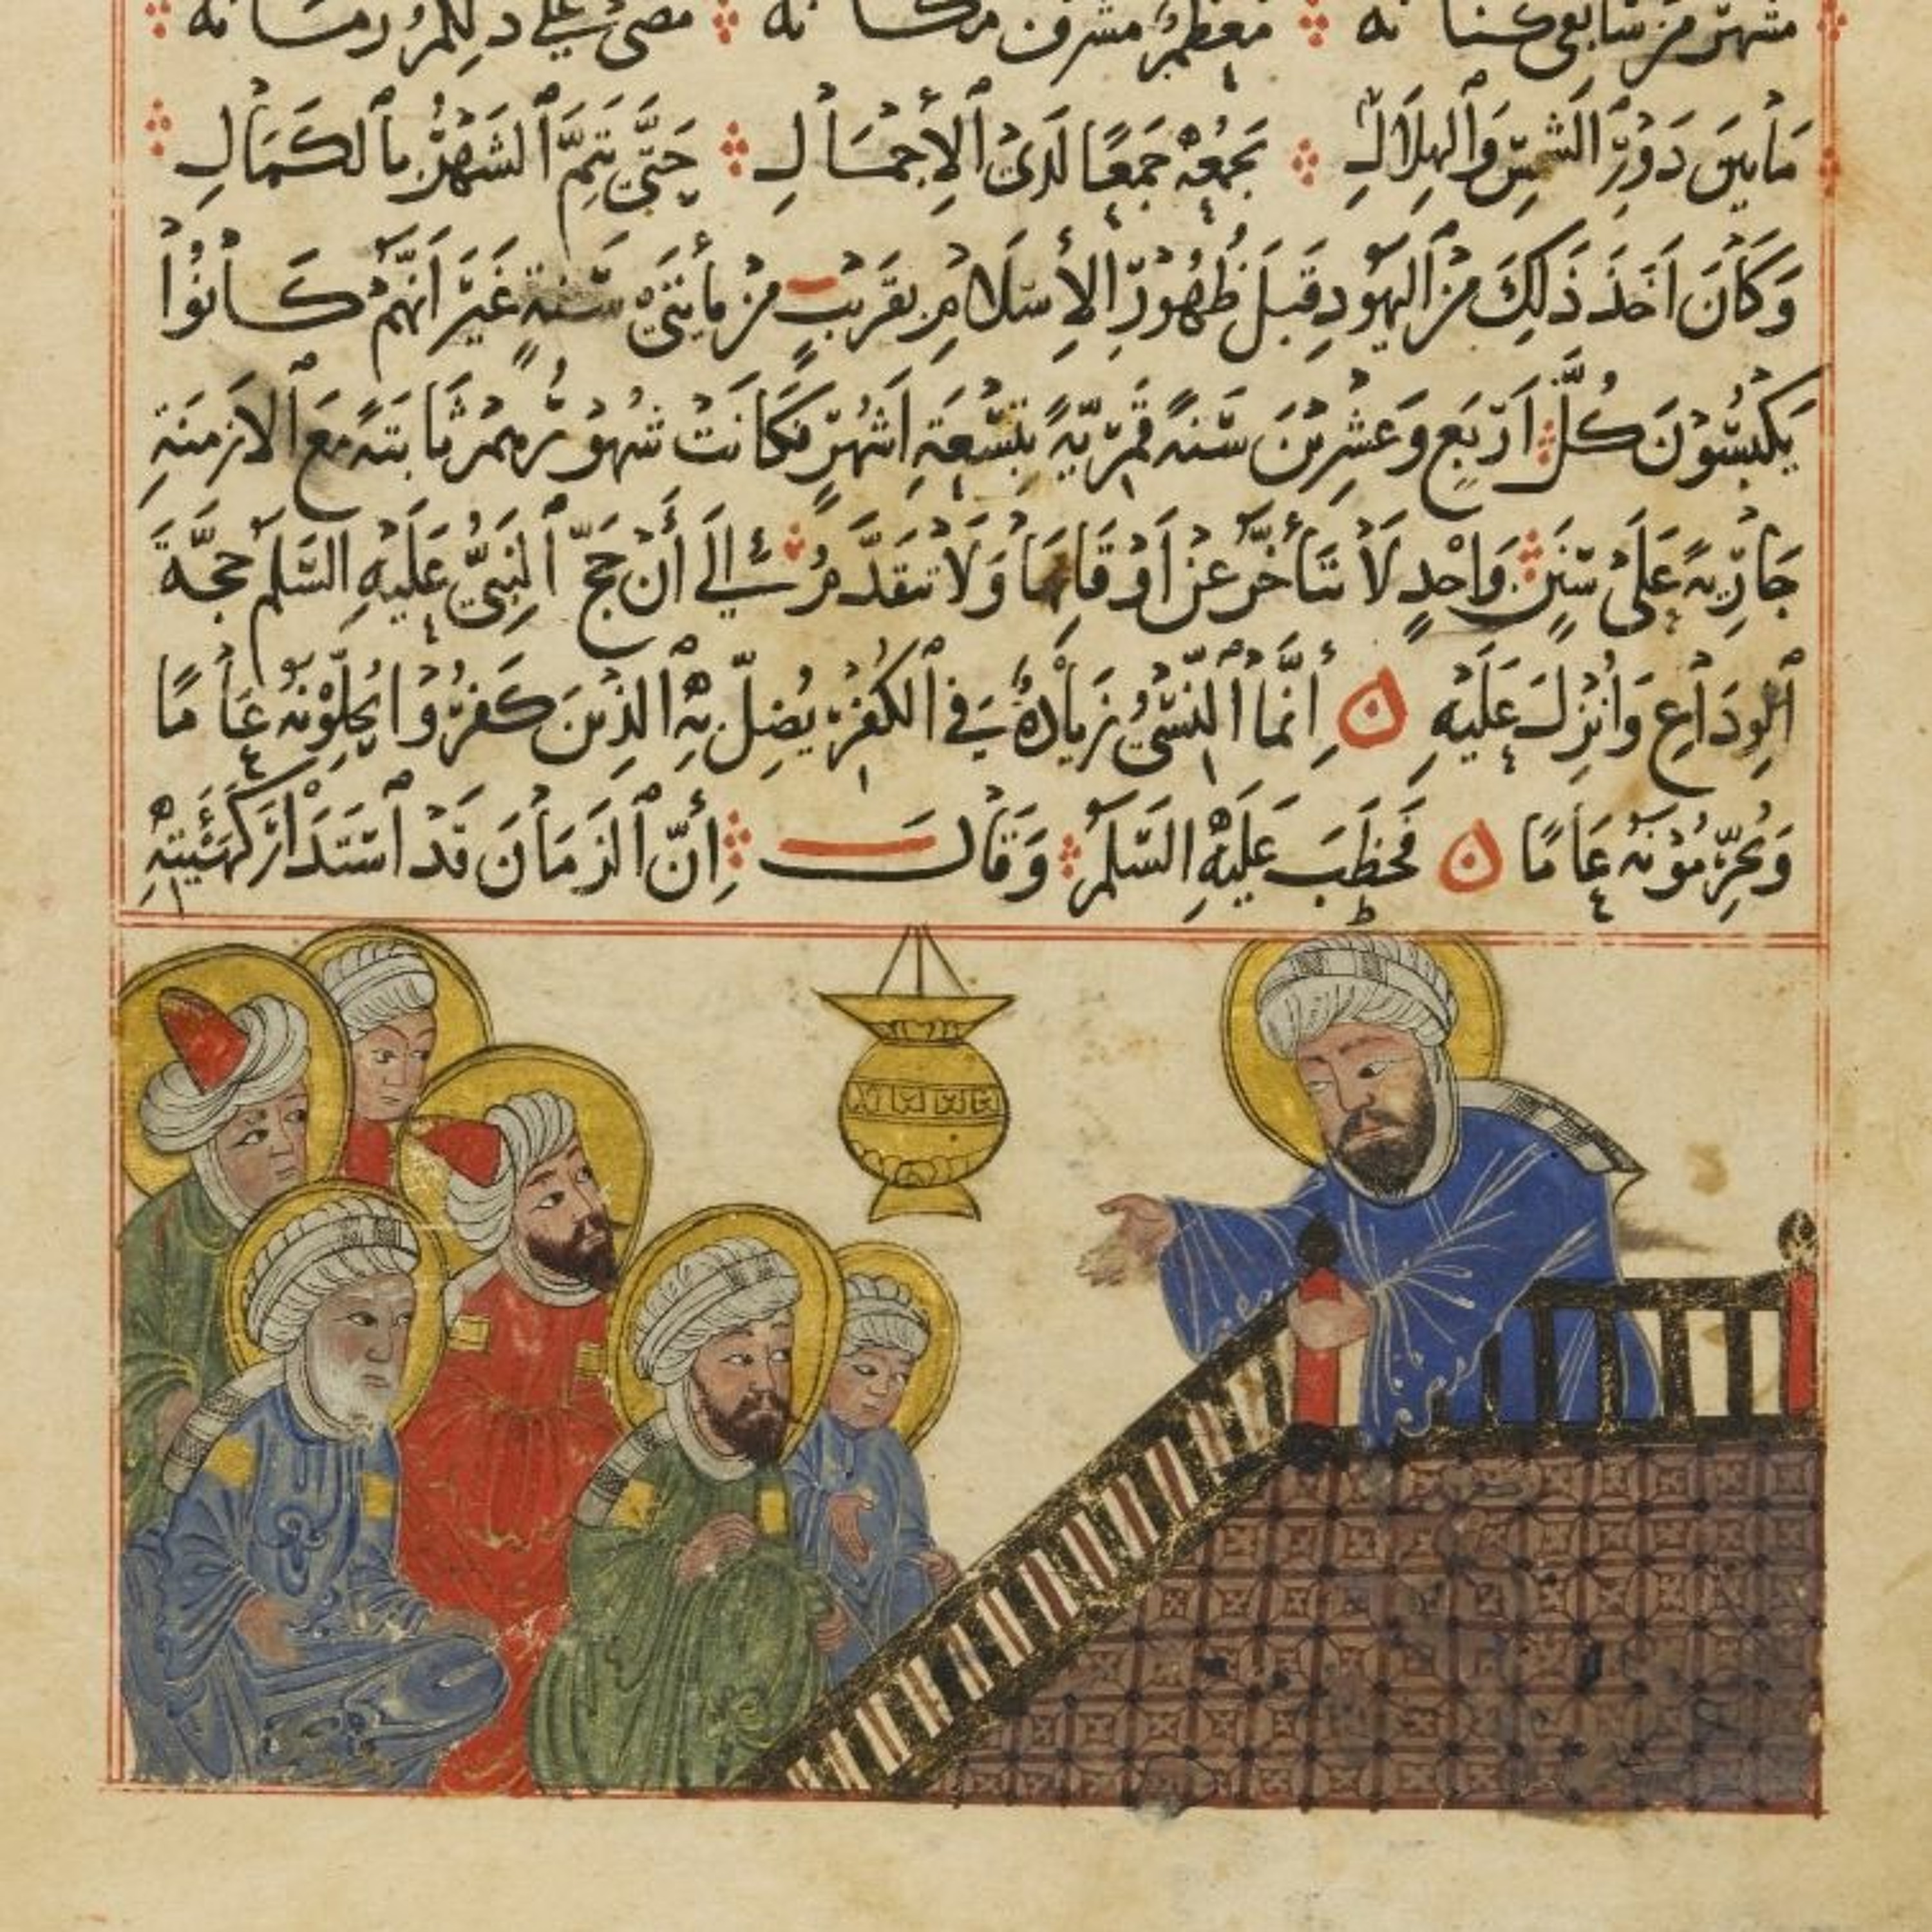 مشهر من سابقي كنانه معظم مشرف مكانه مضى على ذلكم زمانه
مَا بَيْنَ دَوْرِ الشَّمْسِ وَالْهِلَالِ يَجْمَعُهُ جَمْعًا لَدَى الْإِجْمَالِ حَتَّى يَتِمَّ الشَّهْرُ بِالْكَمَالِ
وَكَانَ اَخَذَ ذَلِكَ مِنَ الْيَهُودِ قَبْلَ ظُهُورِ الْإِسْلَامِ بِقَرِيبٍ مِنْ مِأَتَيْ سَنَةٍ غَيْرَ اَنَّهُمْ كَانُوا
يَكْبِسُوْنَ كُلَّ اَرْبَعٍ وَعِشْرِيْنَ سَنَةً قَمَرِيَّةً بِتِسْعَةِ اَشْهُرٍ فَكَانَتْ شُهُوْرُهُمْ ثَابِتَةً مَعَ الْاَزْمِنَةِ
جَارِيَةً عَلَى سَنَنٍ وَاحِدٍ لَا تَتَأَخَّرُ عَنْ اَوْقَاتِهَا وَلَا تَتَقَدَّمُ إِلَى أَنْ حَجَّ النَّبِيُّ عَلَيْهِ السَّلم حَجَّةَ
الْوِدَاعِ وَأُنْزِلَ عَلَيْهِ إِنَّمَا النَّسِيُّ زِيَادَةٌ فِي الْكُفْرِ يُضَلُّ بِهِ الَّذِيْنَ كَفَرُوْا يُحِلُّوْنَهُ عَامًا
وَيُحَرِّمُوْنَهُ عَامًا فَخَطَبَ عَلَيْهِ السَّلم وَقَالَ إِنَّ الزَّمَانَ قَدْ اسْتَدَارَ كَهَيْئَتِهِ